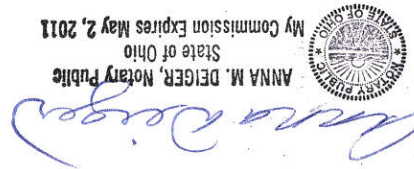 Anna Deiger
ANNA M. DEIGER, Notary Public
State of Ohio
My Commission Expires May 2, 2011
NOTARY PUBLIC
STATE OF OHIO